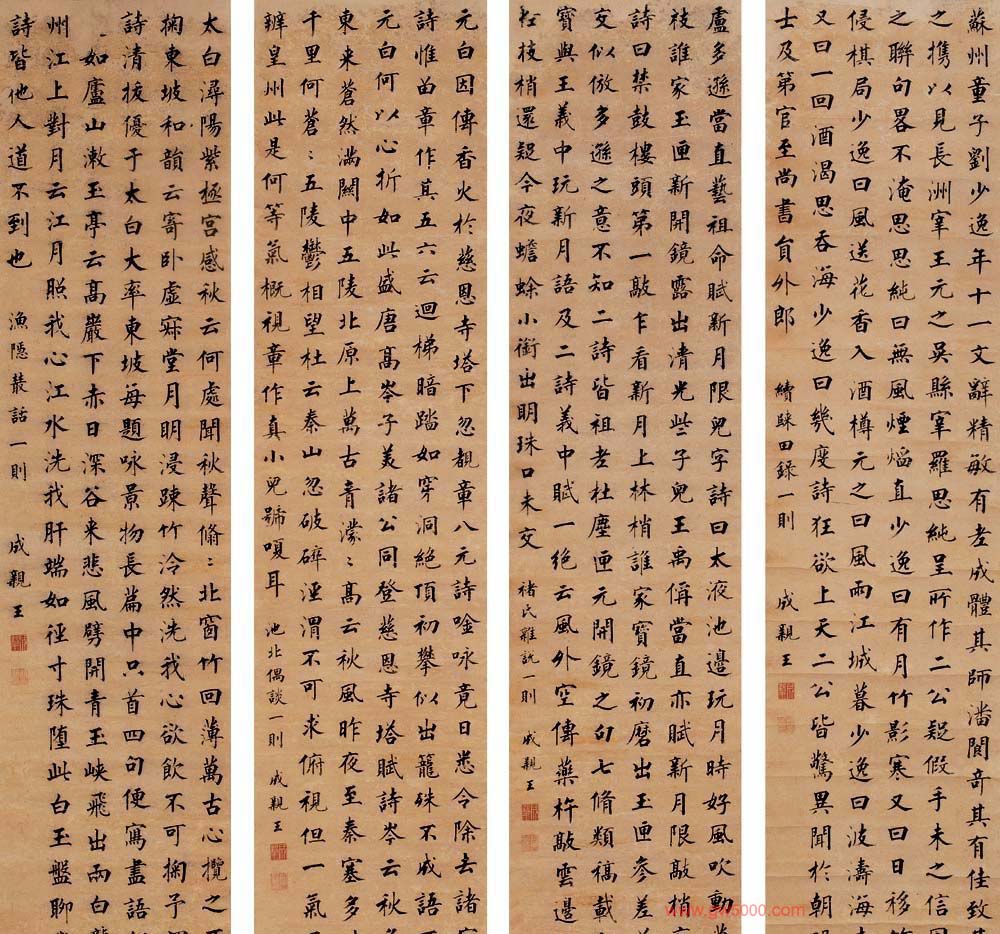 蘇州童子劉少逸年十一文辭精敏有老成體其師潘閬奇其有佳致
之攜以見長洲宰王元之吳縣宰羅思純呈所作二公疑假手未之信因
之聯句畧不淹思思純曰無風煙焰直少逸曰有月竹影寒又曰日移
侵棋局少逸曰風送花香入酒樽元之曰風雨江城暮少逸曰波濤海
又曰一回酒渴思吞海少逸曰幾度詩狂欲上天二公皆驚異聞於朝
士及第官至尚書員外郎
續歸田錄一則
成親王
盧多遜當直藝祖命賦新月限兒字詩曰太液池邊玩月時好風吹動
枝誰家玉匣新開鏡露出清光些子兒王禹偁當直亦賦新月限敲梢
詩曰禁鼓樓頭第一敲乍看新月上林梢誰家寶鏡初磨出玉匣參差
交似倣多遜之意不知二詩皆祖老杜塵匣元開鏡之句七脩類稿載
寶與王義中玩新月語及二詩義中賦一絕云風外空傳藥杵敲雲邊
枝梢還疑今夜蟾蜍小銜出明珠口未交
褚氏雜說一則
成親王
元白因傳香火於慈恩寺塔下忽覩章八元詩唫咏竟日悉令除去諸
詩惟畄章作其五六云迴梯暗踏如穿洞絕頂初攀似出籠殊不成語
元白何以心折如此盛唐高岑子美諸公同登慈恩寺塔賦詩岑云秋
東来蒼然滿關中五陵北原上萬古青濛〻高云秋風昨夜至秦塞多
千里何蒼〻五陵鬱相望杜云秦山忽破碎涇渭不可求俯視但一氣
辨皇州此是何等氣概視章作真小兒號嗄耳
池北偶談一則
成親王
太白潯陽紫極宮感秋云何處聞秋聲翛〻北窗竹回薄萬古心攬之
掬東坡和韻云寄卧虛寂堂月明浸疎竹泠然洗我心欲飲不可掬予
詩清拔優于太白大率東坡每題咏景物長篇中只首四句便寫盡語
如廬山漱玉亭云高巖下赤日深谷来悲風劈開青玉峽飛出兩白龍
州江上對月云江月照我心江水洗我肝端如徑寸珠堕此白玉盤聊
詩皆他人道不到也
漁隱叢話一則
成親王
www.gw5000.com